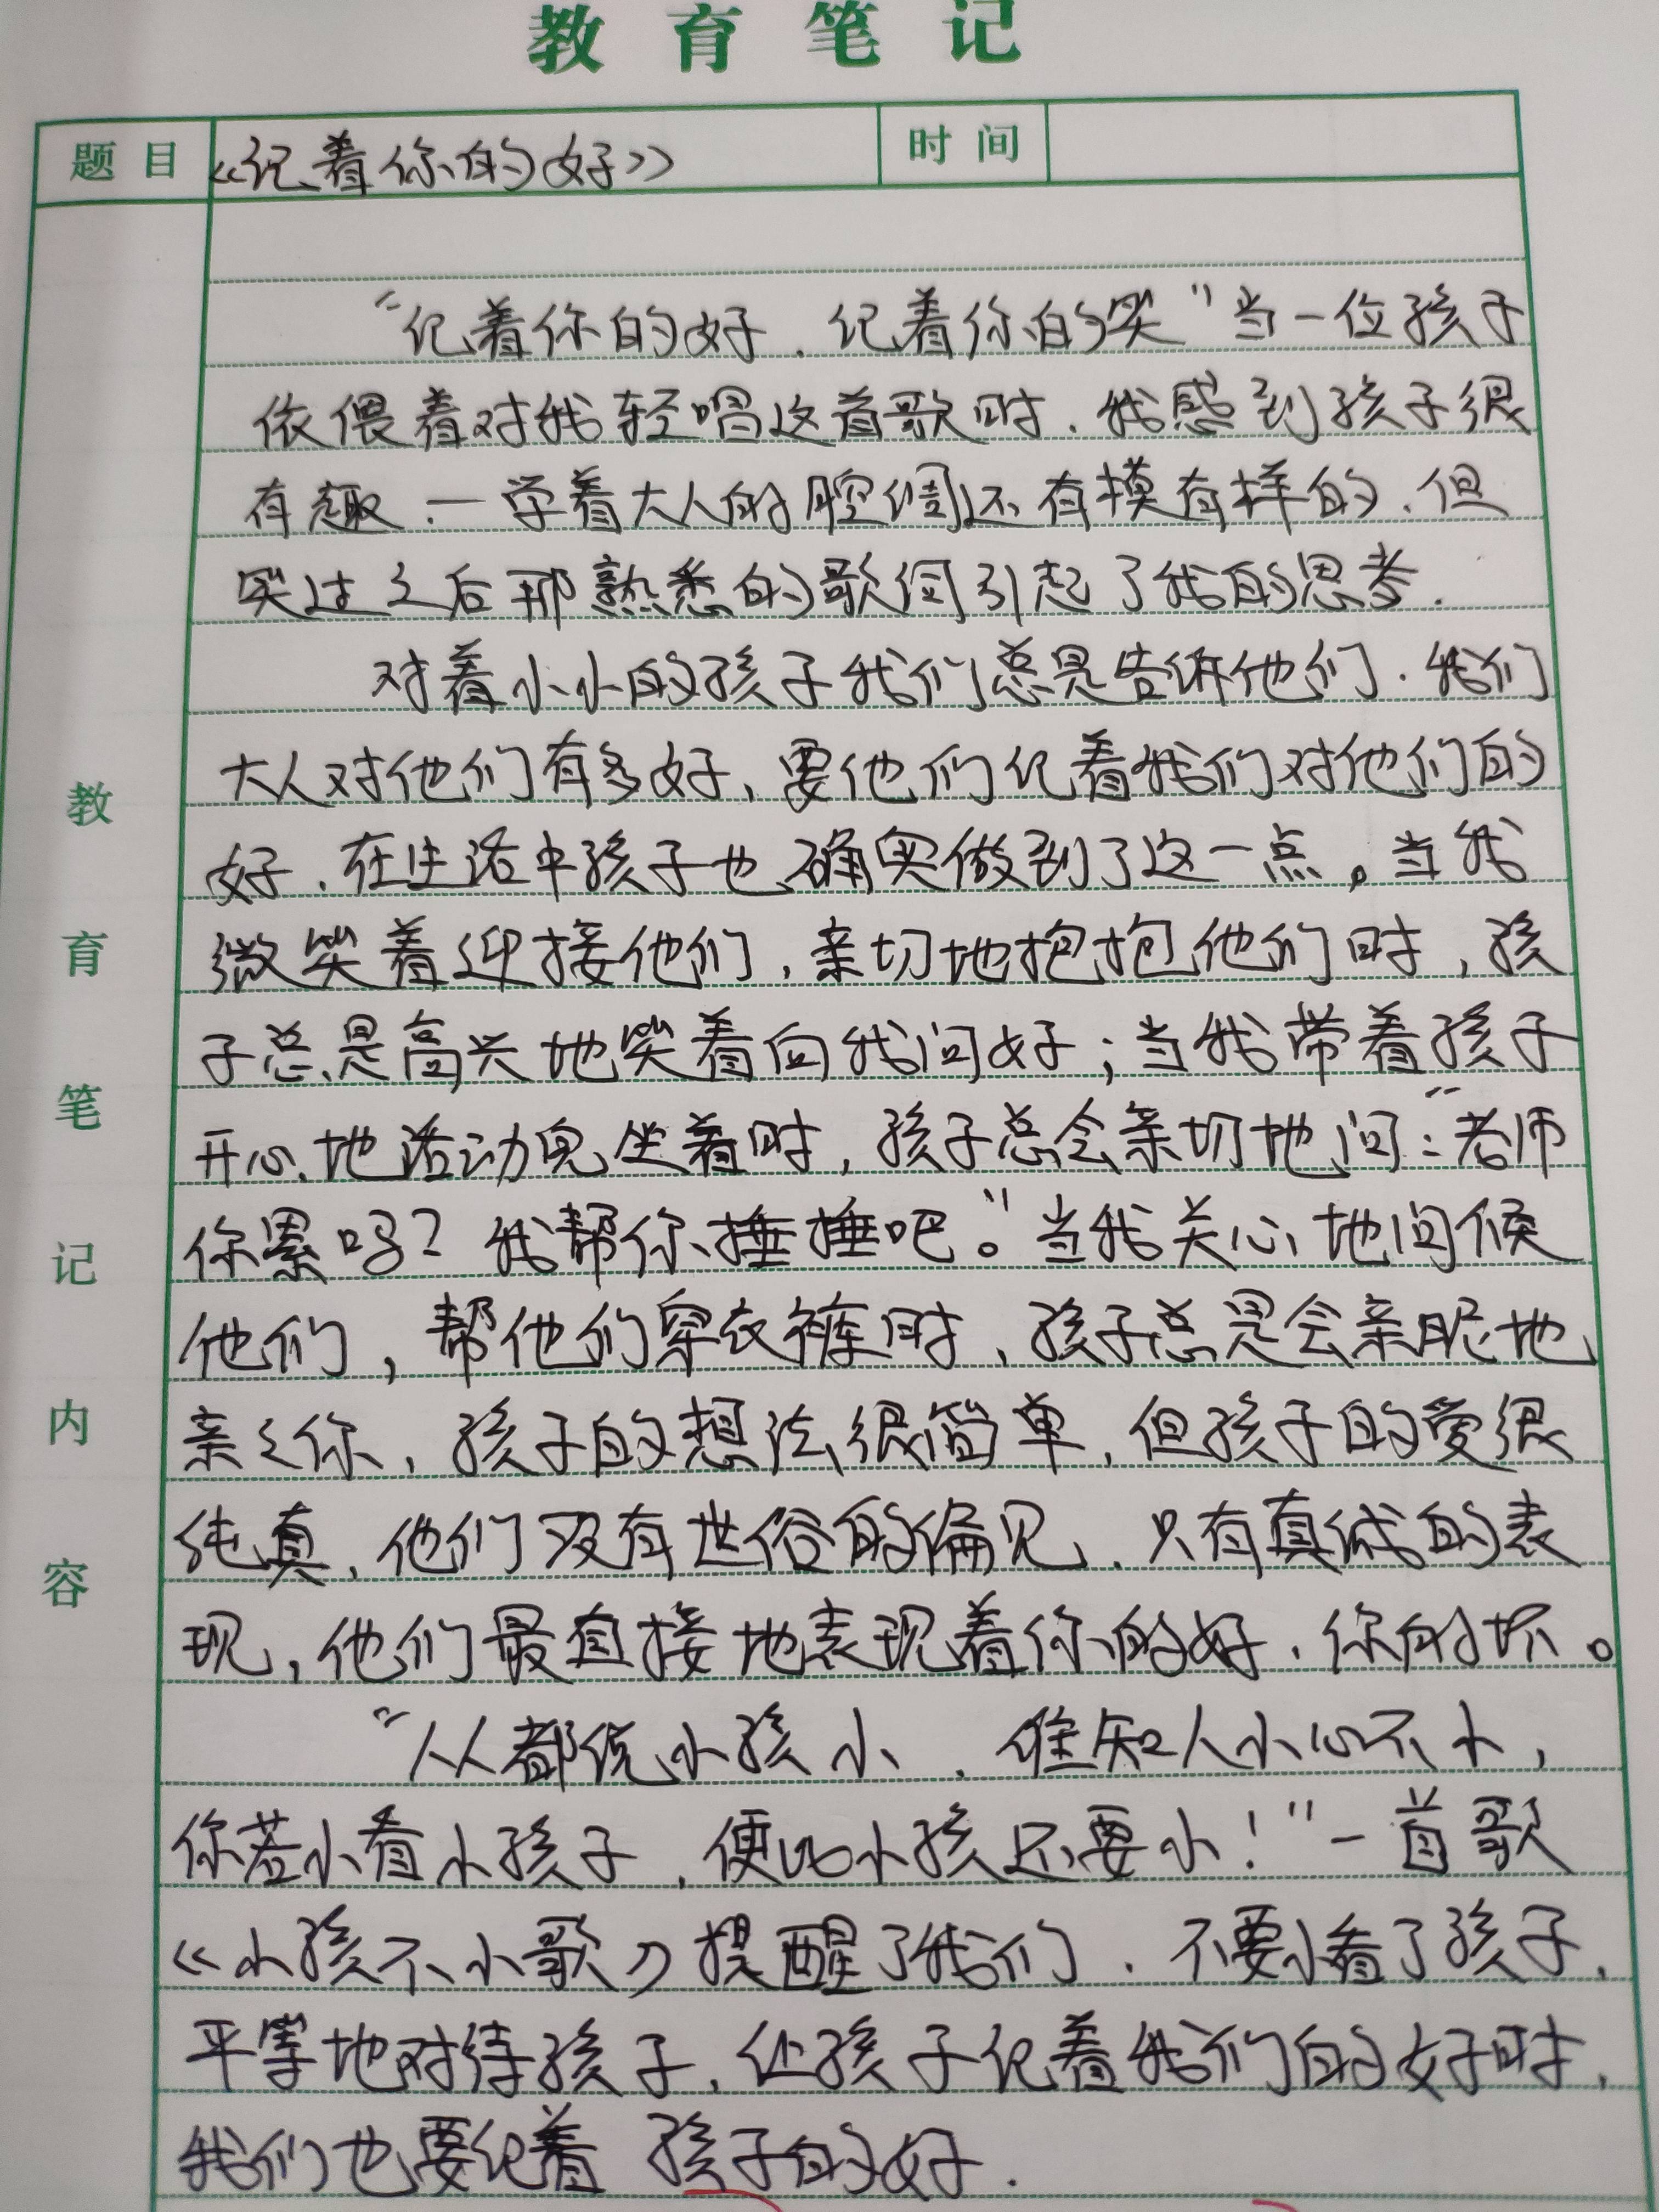 教育笔记
题目 《记着你的好》 时间
“记着你的好,记着你的笑”当一位孩子
依偎着对我轻唱这首歌时,我感到孩子很
有趣.一学着大人的腔调还有模有样的,但
笑过之后那熟悉的歌词引起了我的思考.
对着小小的孩子我们总是告诉他们.我们
大人对他们有多好,要他们记着我们对他们的
好.在生活中孩子也确实做到了这一点。当我
微笑着迎接他们,亲切地抱抱他们时,孩
子总是高兴地笑着向我问好;当我带着孩子
开心地活动完坐着时,孩子总会亲切地问:“老师
你累吗?我帮你捶捶吧。”当我关心地问候
他们,帮他们穿衣裤时,孩子总是会亲昵地
亲亲你,孩子的想法很简单,但孩子的爱很
纯真,他们没有世俗的偏见,只有真诚的表
现,他们最直接地表现着你的好,你的坏。
“人人都说小孩小,谁知人小心不小,
你若小看小孩子,便比小孩还要小!”一首歌
《小孩不小歌》提醒了我们.不要小看了孩子,
平等地对待孩子,让孩子记着我们的好时,
我们也要记着孩子的好.
教育笔记内容